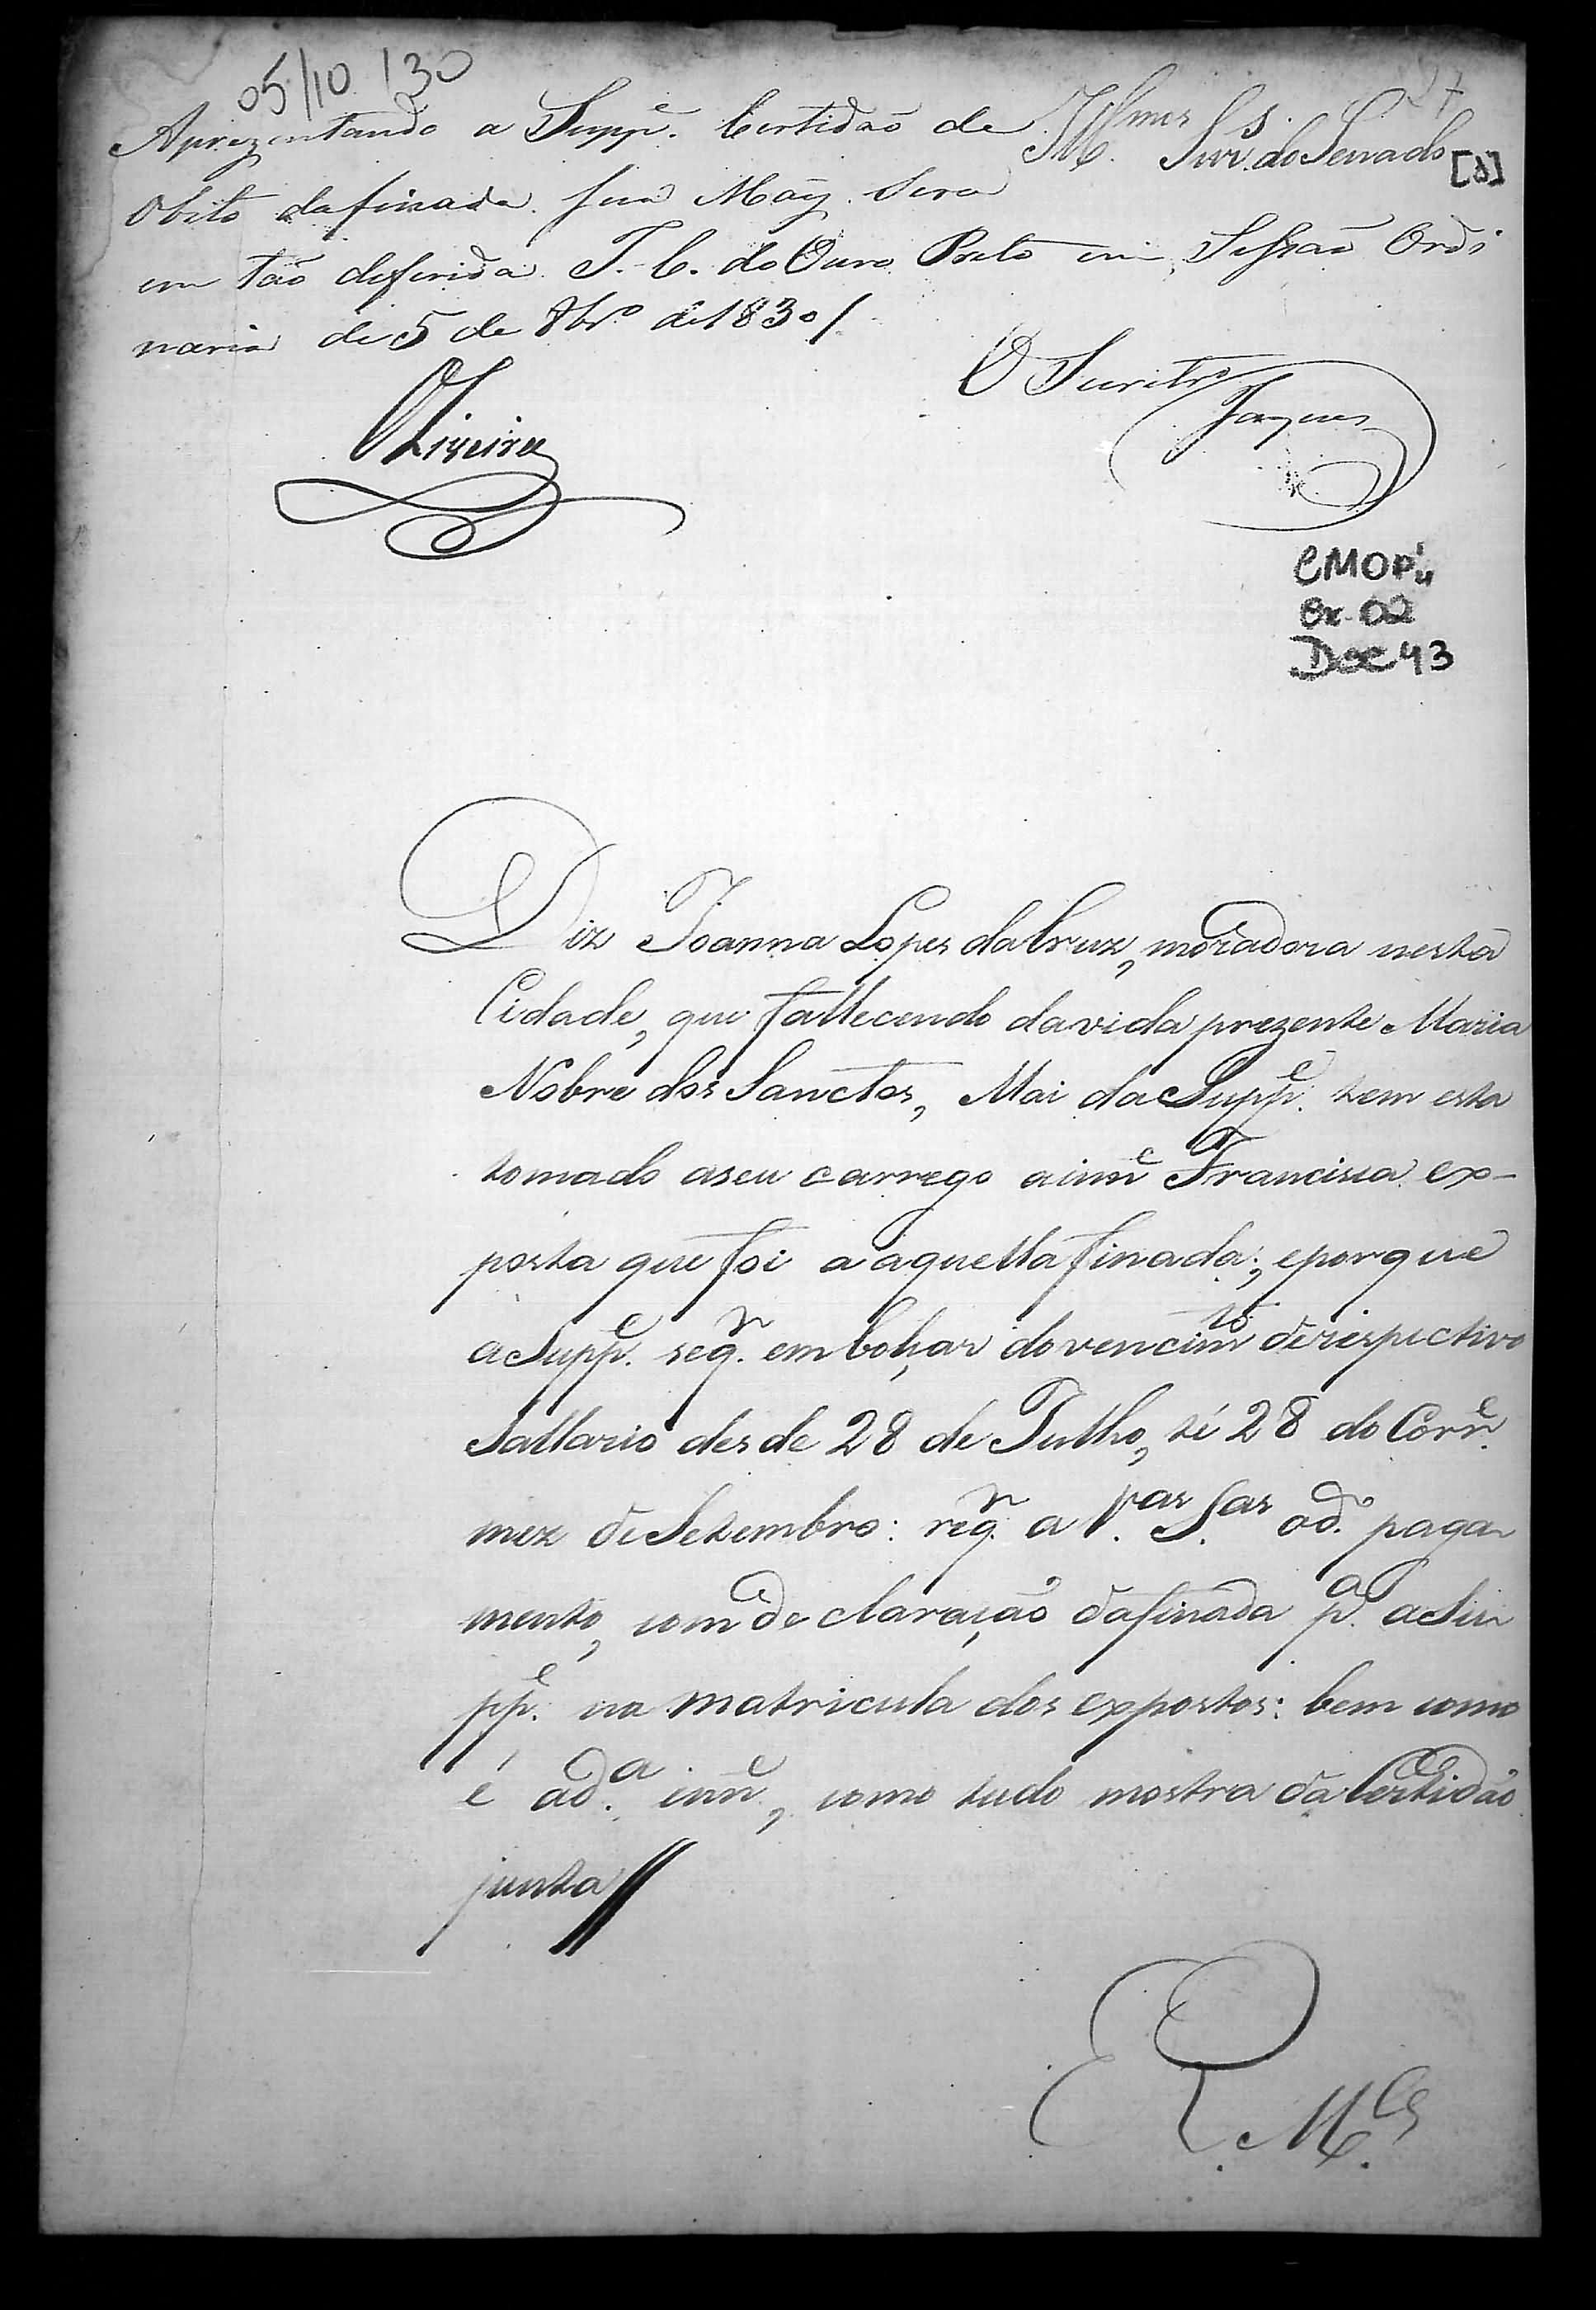 05/10/30
Aprezentando a Suppe. Certidaõ de
Obito da finada sua Mãy sera
em taõ deferida. I. C. do Ouro Preto em Sessaõ Ordi
naria de 5 de 8br.o de 1830/.
Illmos Srs. do Senado
[d]
Oliveira
O Secretro
Jaques
CMOP
Cx. 02
Doc 43
Diz Joanna Lopes da Cruz, moradora nesta
Cidade, que fallecendo da vida prezente Maria
Nobre dos Sanctos, Mai da Suppe. tem esta
tomado a seu carrego a inne Francisca ex-
posta que foi a aquella finada; e porque
a Suppe. reqr. embolçar do vencimto de respectivo
Sallario des de 28 de Julho, té 28 do Corre.
mez de Setembro: reqr. a V.as S.as o do. paga-
mento, com declaração da finada pa. a Su-
ppe. na matricula dos expostos: bem como
é a da. inne, como tudo mostra da Certidão
junta//
E R M.ce